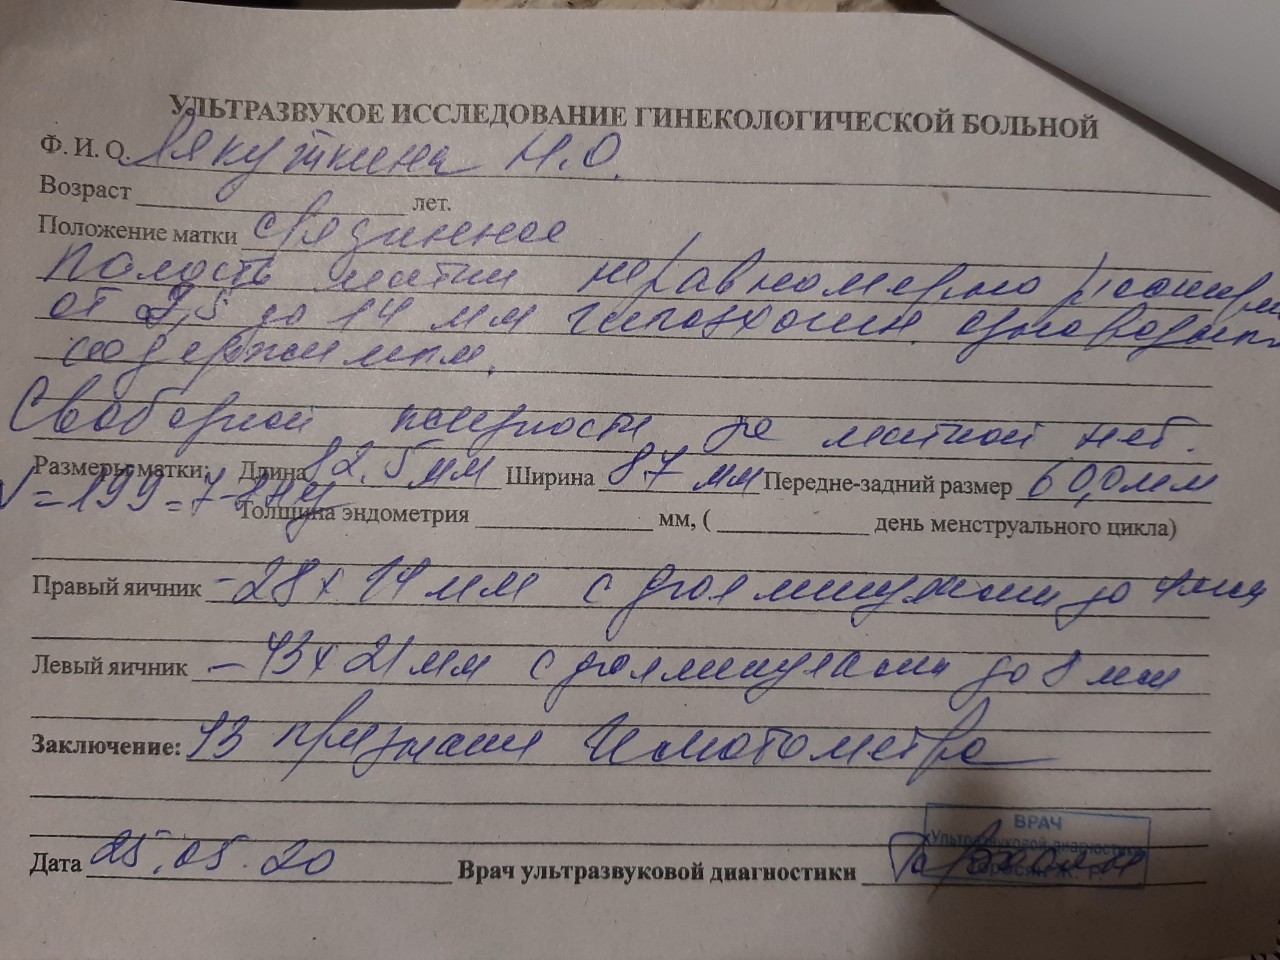 УЛЬТРАЗВУКОЕ ИССЛЕДОВАНИЕ ГИНЕКОЛОГИЧЕСКОЙ БОЛЬНОЙ
Ф. И. О. Лякуткина Н.О.
Возраст лет.
Положение матки срединное
Полость матки неравномерно расширена
от 2,5 до 14 мм гипоэхоген. однородным
содержимым.
Свободной жидкости за маткой нет.
Размеры матки: Длина 82.5 мм Ширина 87 мм Передне-задний размер 60,0 мм
V = 199 = 7-8 нед
Толщина эндометрия мм, ( день менструального цикла)
Правый яичник - 28 х 14 мм с фолликулами до 4 мм
Левый яичник - 43 х 21 мм с фолликулами до 8 мм
Заключение: УЗ признаки Гематометра
Дата 25.05.20 Врач ультразвуковой диагностики
ВРАЧ
Ультразвуковой диагностики